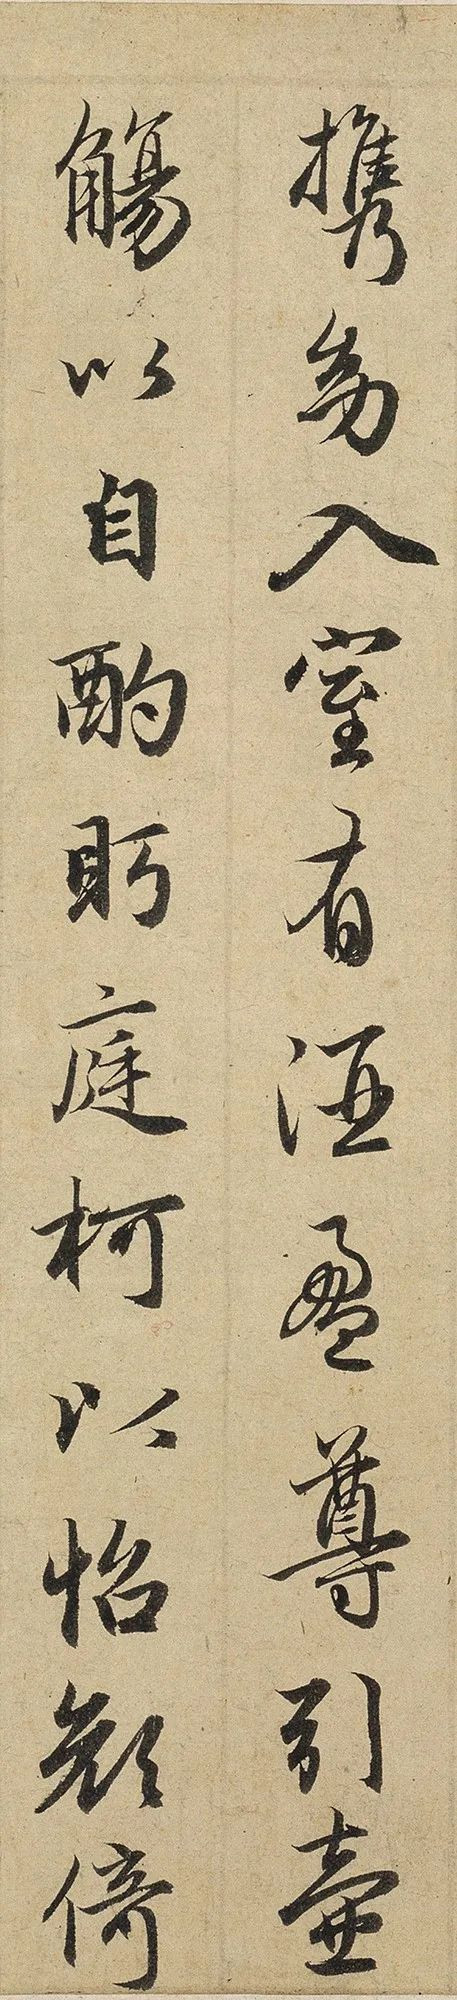 携幼入室有酒盈尊引壺
觴以自酌眄庭柯以怡顔倚